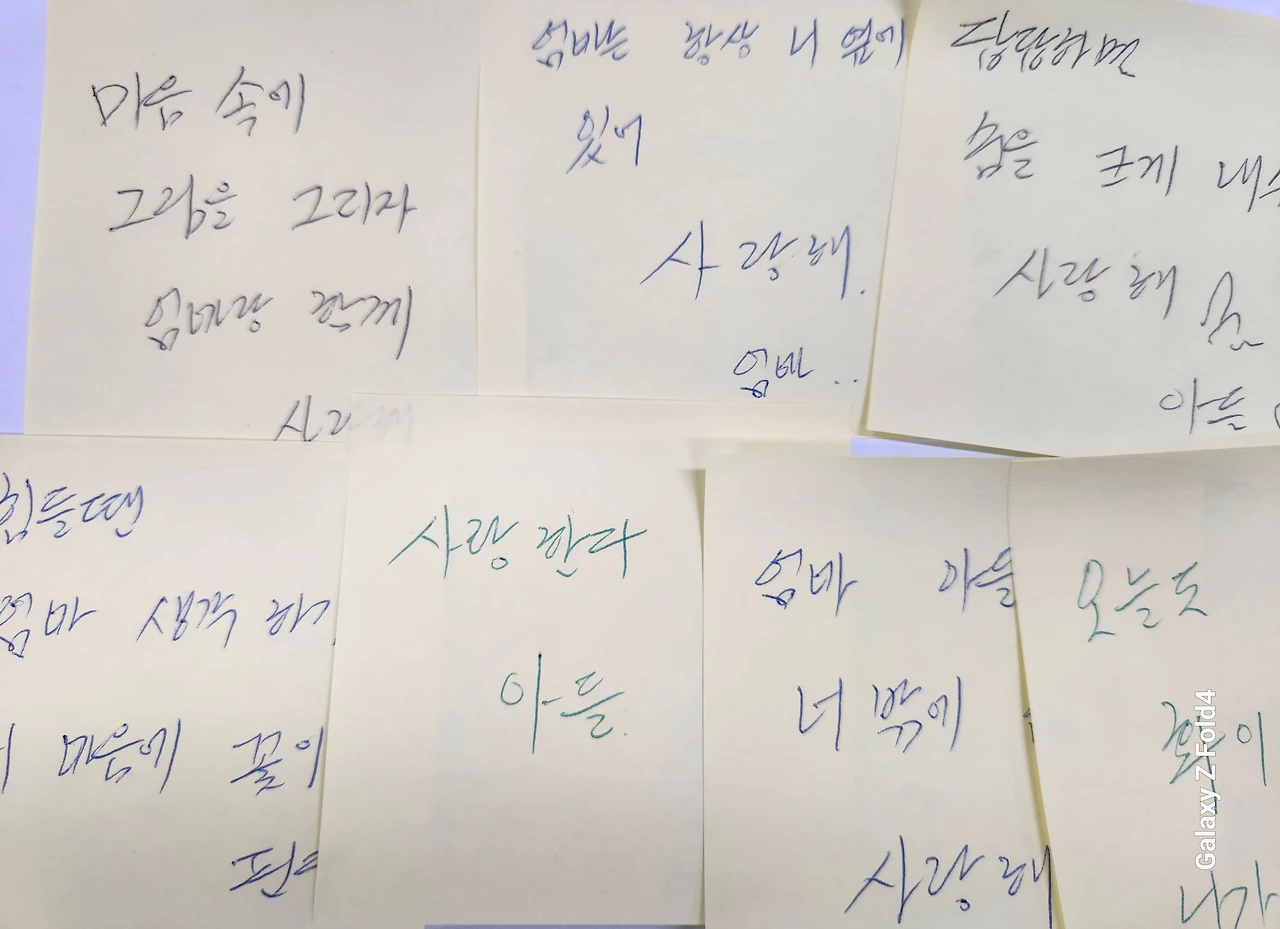 마음 속에
그림을 그리자
엄마랑 함께
엄마는 항상 니 옆에
있어
사랑해.
엄마..
답답하면
숨을 크게
사랑해
아들
힘들땐
엄마 생각
마음에 꽃이
사랑한다
아들.
엄마 아들
너 밖에
사랑해
오늘도
니가
Galaxy Z Fold4